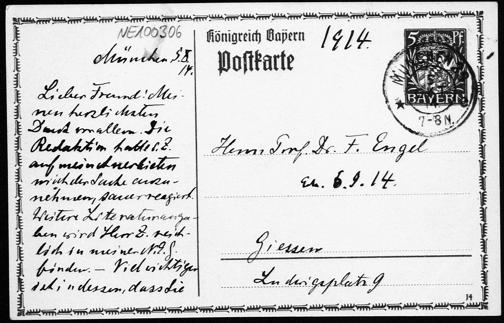 NE100306
München 5.I.
14.
Lieber Freund! Mei-
nen herzlichsten
Dank vor allem. Die
Redaktion hatte s. Z.
auf mein Anerbieten
mich der Sache anzu-
nehmen, sauer reagiert.
Weitere Literaturanga-
ben wird Herr Z. reich-
lich in meiner N. G.
finden. — Viel wichtiger
ist indessen, dass die
Königreich Bayern
1914.
Postkarte
5 Pf
BAYERN
MÜNCHEN
7-8 N.
Herrn Prof. Dr. F. Engel
6. 1. 14.
Giessen
Ludwigsplatz 9
14